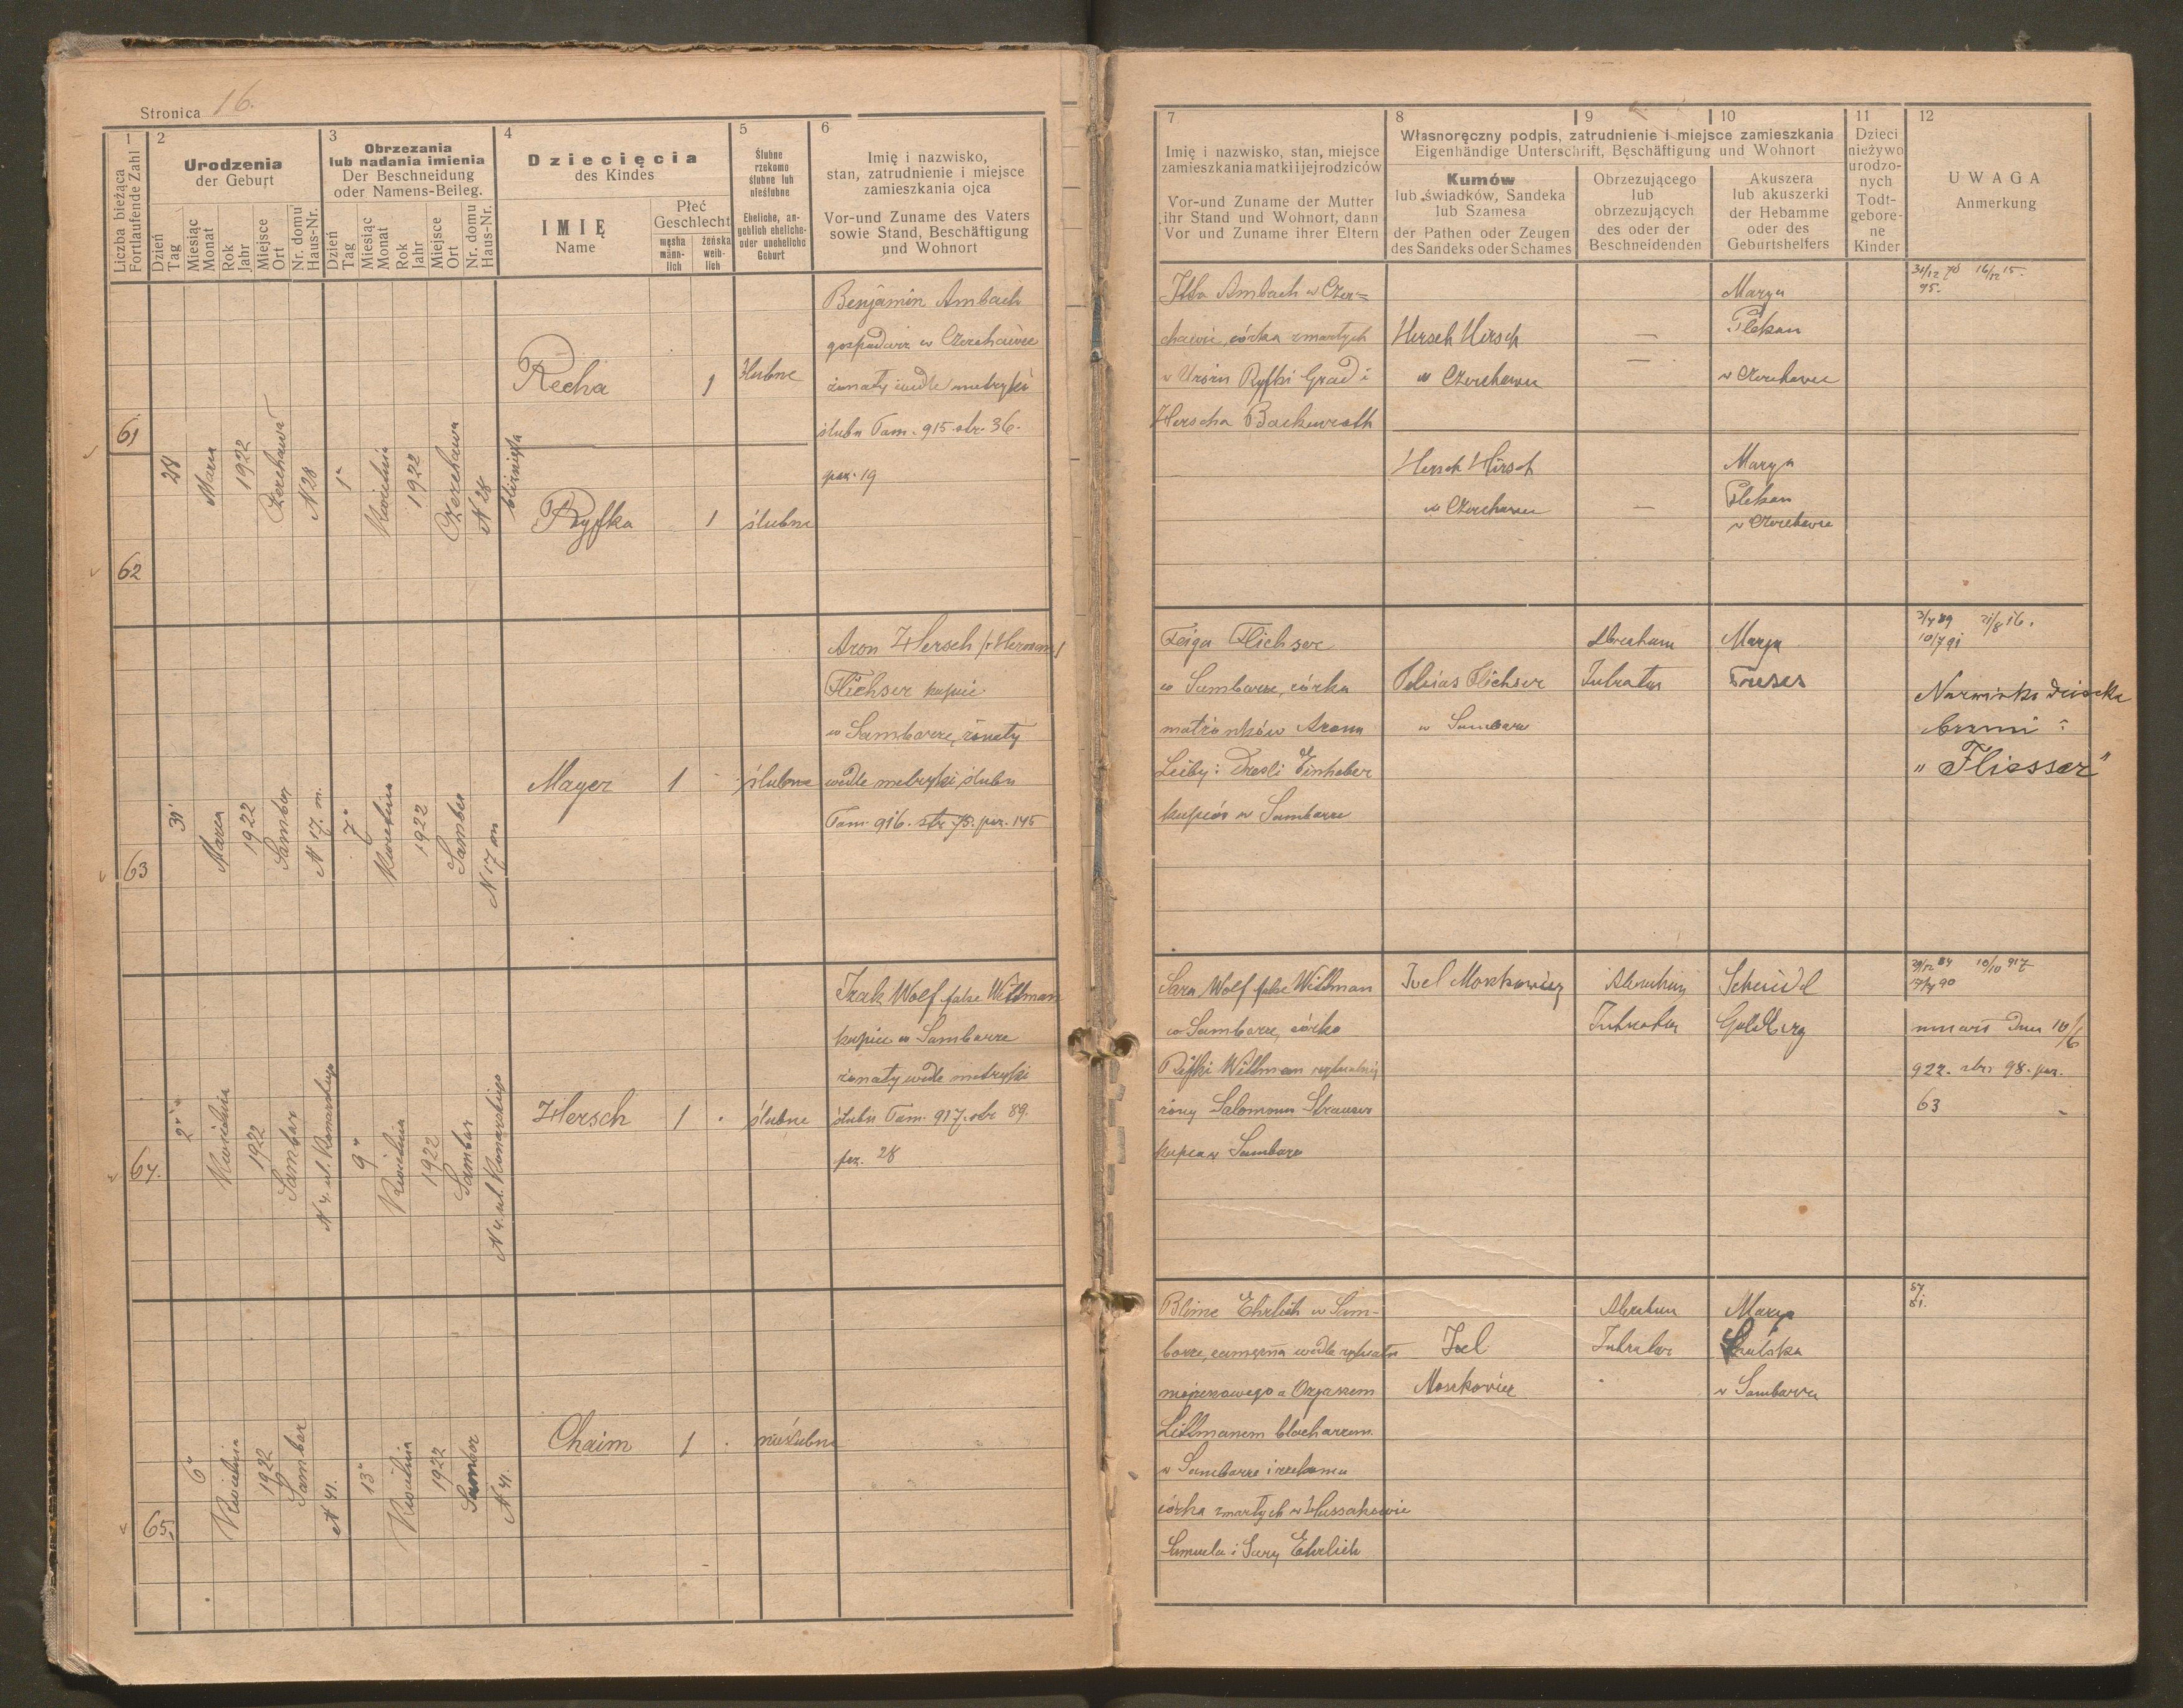 Stronica 16.
1
Liczba bieżąca
Fortlaufende Zahl
2
Urodzenia
der Geburt
Dzień
Tag
Miesiąc
Monat
Rok
Jahr
Miejsce
Ort
Nr. domu
Haus-Nr.
3
Obrzezania
lub nadania imienia
Der Beschneidung
oder Namens-Beileg.
Dzień
Tag
Miesiąc
Monat
Rok
Jahr
Miejsce
Ort
Nr. domu
Haus-Nr.
4
Dziecięcia
des Kindes
IMIĘ
Name
Płeć
Geschlecht
męska
männ-
lich
żeńska
weib-
lich
5
Ślubne
rzekomo
ślubne lub
nieślubne
Eheliche, an-
geblich eheliche-
oder uneheliche
Geburt
6
Imię i nazwisko,
stan, zatrudnienie i miejsce
zamieszkania ojca
Vor-und Zuname des Vaters
sowie Stand, Beschäftigung
und Wohnort
7
Imię i nazwisko, stan, miejsce
zamieszkania matki i jej rodziców
Vor-und Zuname der Mutter
ihr Stand und Wohnort, dann
Vor und Zuname ihrer Eltern
8
9
10
Własnoręczny podpis, zatrudnienie i miejsce zamieszkania
Eigenhändige Unterschrift, Beschäftigung und Wohnort
Kumów
lub świadków, Sandeka
lub Szamesa
der Pathen oder Zeugen
des Sandeks oder Schames
Obrzezującego
lub
obrzezujących
des oder der
Beschneidenden
Akuszera
lub akuszerki
der Hebamme
oder des
Geburtshelfers
11
Dzieci
nieżywo
urodzo-
nych
Todt-
gebore-
ne
Kinder
12
UWAGA
Anmerkung
61
28
Marca
1922
Czerchawa
N 28
1"
Kwietnia
1922
Czerchawa
N 28
bliznięta
Recha
1
ślubne
Benjamin Ambach
gospodarz w Czerchawie
żonaty wedle metryki
ślubu Tom. 915. str. 36.
poz. 19
Itta Ambach w Czer=
chawie, córka zmarłych
w Urożu Ryfki Grad i
Herscha Backenroth
Hersch Hirsch
w Czerchawie
—
Marya
Plekan
w Czerchawie
31/12 70 16/12 15.
95.
62
Ryfka
1
ślubne
Hersch Hirsch
w Czerchawie
—
Marya
Plekan
w Czerchawie
63
31
Marca
1922
Sambor
N 17. m.
7"
Kwietnia
1922
Sambor
N 17 m
Mayer
1
ślubne
Aron Hersch /:Herman:/
Flichser kupiec
w Samborze, żonaty
wedle metryki ślubu
Tom. 916. str. 75. poz. 145
Feiga Flichser
w Samborze, córka
małżonków Arona
Leiby i Dresli Einhaber
kupców w Samborze
Tobias Flichser
w Sambor
Abraham
Marya
3/7 89 21/8 16.
10/7 91
Nazwisko dziecka
brzmi:
"Fliesser"
64.
2"
Kwietnia
1922
Sambor
N 4. ul. Komarskiego
9"
Kwietnia
1922
Sambor
N 4. ul. Komarskiego
Hersch
1
ślubne
Izak Wolf false Wittman
kupiec w Samborze
żonaty wedle metryki
ślubu Tom. 917. str. 89.
poz. 28
Sara Wolf false Wittman
w Samborze, córka
Rifki Wittman rytualnej
żony Salomona Strauser
kupca w Samborze
Joel Moszkowicz
Abraham
Scheindl
Goldberg
29/12 84 10/10 917
17/4 90
umarł dnia 10/6
922. str. 98. poz.
63
65.
6"
Kwietnia
1922
Sambor
N 41.
13"
Kwietnia
1922
Sambor
N 41.
Chaim
1
nieślubne
Blime Ehrlich w Sam-
borze, zamężna wedle rytuału
mojżeszowego z Ozyaszem
Littmanem blacharzem
w Samborze i rzekoma
córka zmarłych w Hussakowie
Samuela i Sary Ehrlich
Joel
Moszkowicz
Abraham
Marya
w Samborze